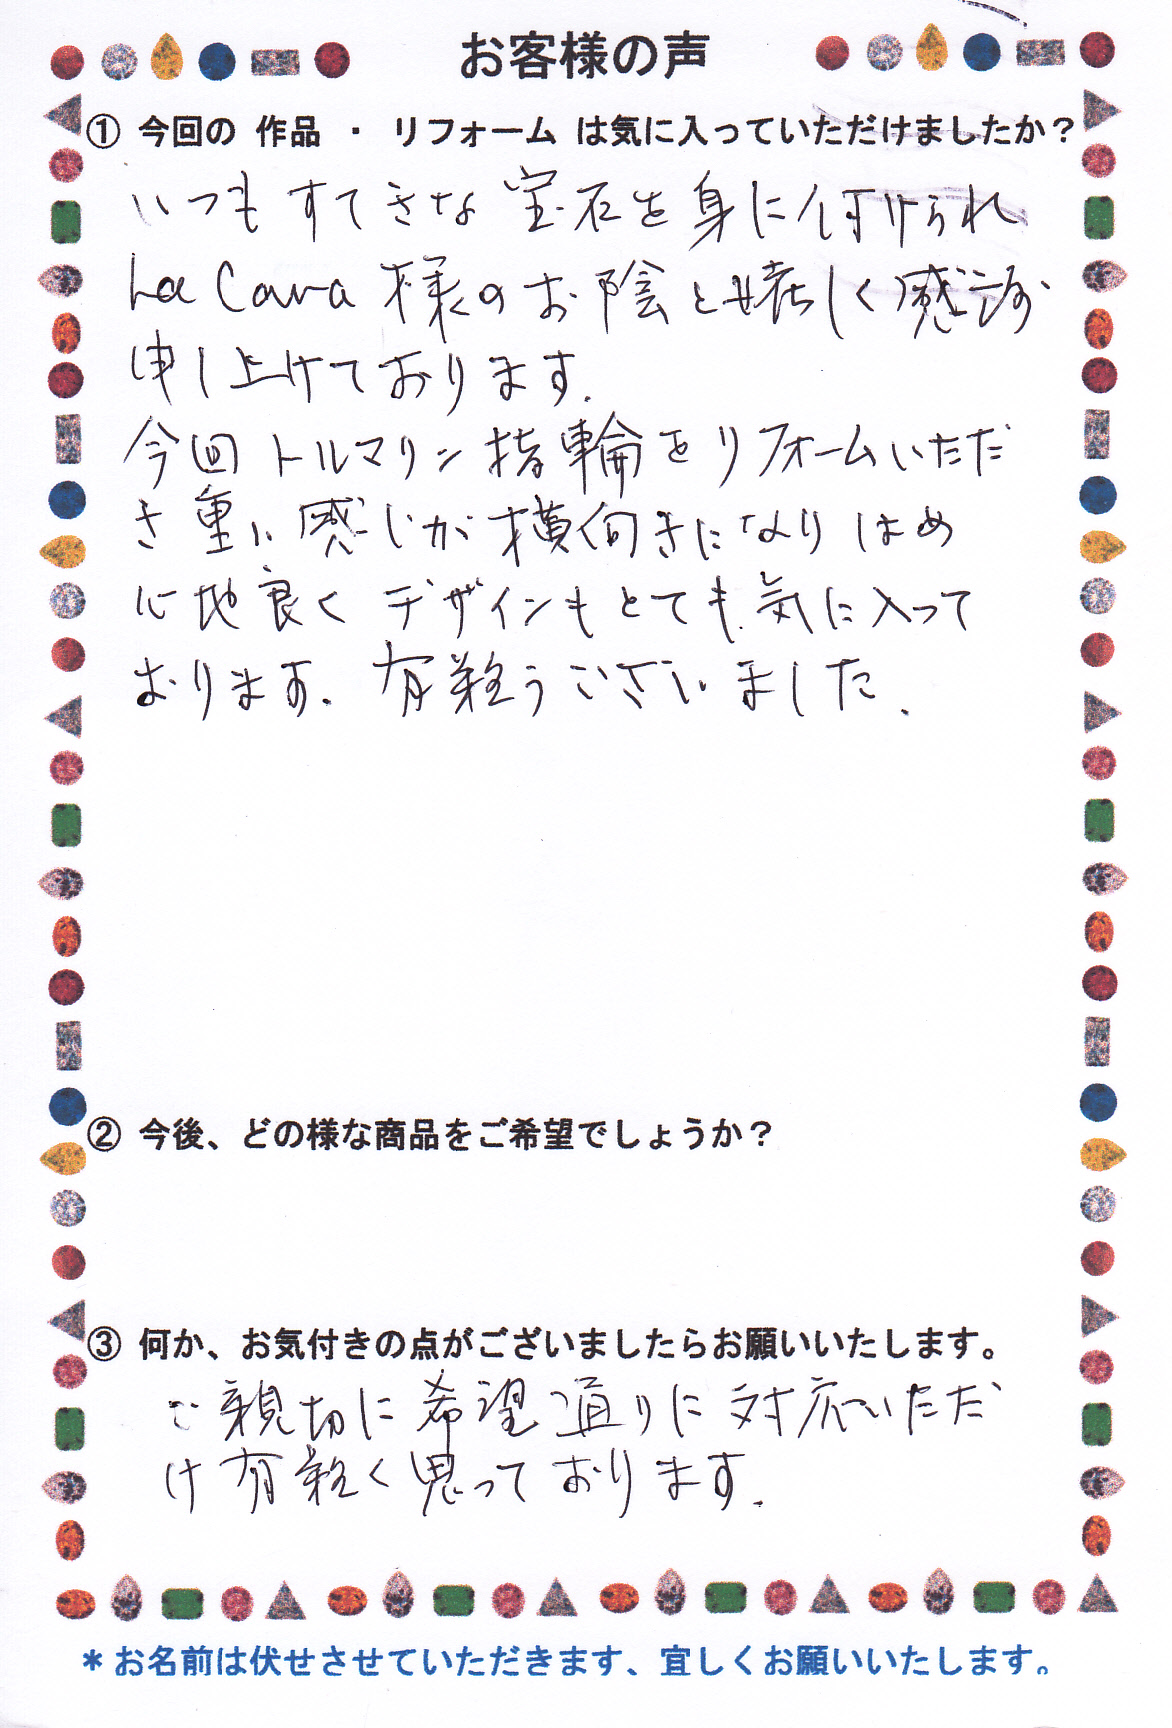 お客様の声
① 今回の 作品 ・ リフォーム は気に入っていただけましたか？
いつも すてきな 宝石を身に付けられ
La Cara 様のお陰と嬉しく感謝
申し上げております.
今回 トルマリン 指輪をリフォームいただ
き重い感じが横向きになり はめ
心地良く デザインもとても気に入って
おります. 有難うございました.
② 今後、どの様な商品をご希望でしょうか？
③ 何か、お気付きの点がございましたらお願いいたします。
ご親切に希望通りに対応いただ
け有難く思っております.
＊お名前は伏せさせていただきます、宜しくお願いいたします。